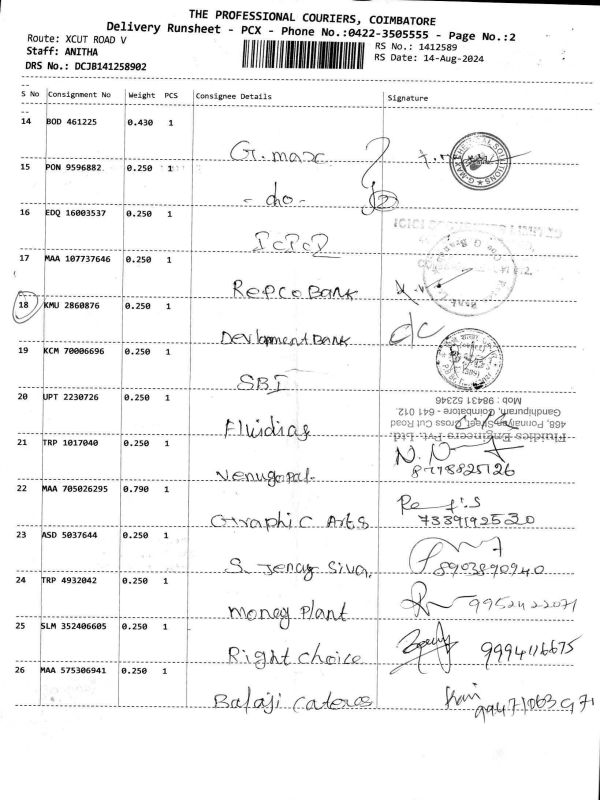 THE PROFESSIONAL COURIERS, COIMBATORE
Delivery Runsheet - PCX - Phone No.:0422-3505555 - Page No.:2
Route: XCUT ROAD V
RS No.: 1412589
Staff: ANITHA
RS Date: 14-Aug-2024
DRS No.: DCJB141258902
S No Consignment No Weight PCS Consignee Details Signature
14 BOD 461225 0.430 1
G.max
15 PON 9596882 0.250 1
- do - 2
16 EDQ 16003537 0.250 1
17 MAA 107737646 0.250 1
Repco Bank
18 KMU 2860876 0.250 1
Devlopment Bank dc
19 KCM 70006696 0.250 1
SBI
20 UPT 2230726 0.250 1
Mob : 98431 52346
Gandhipuram, Coimbatore - 641 012.
468, Ponnaiyan Street, Cross Cut Road
Fluidics Engineers Pvt. Ltd.
21 TRP 1017040 0.250 1
8778825126
Venugopal
22 MAA 705026295 0.790 1
Graphic Arts 7339192530
23 ASD 5037644 0.250 1
S. Jency Siva 8903890940
24 TRP 4932042 0.250 1
Money Plant 9952422071
25 SLM 352406605 0.250 1
Right choice 9994116675
26 MAA 575306941 0.250 1
Balaji Cateros